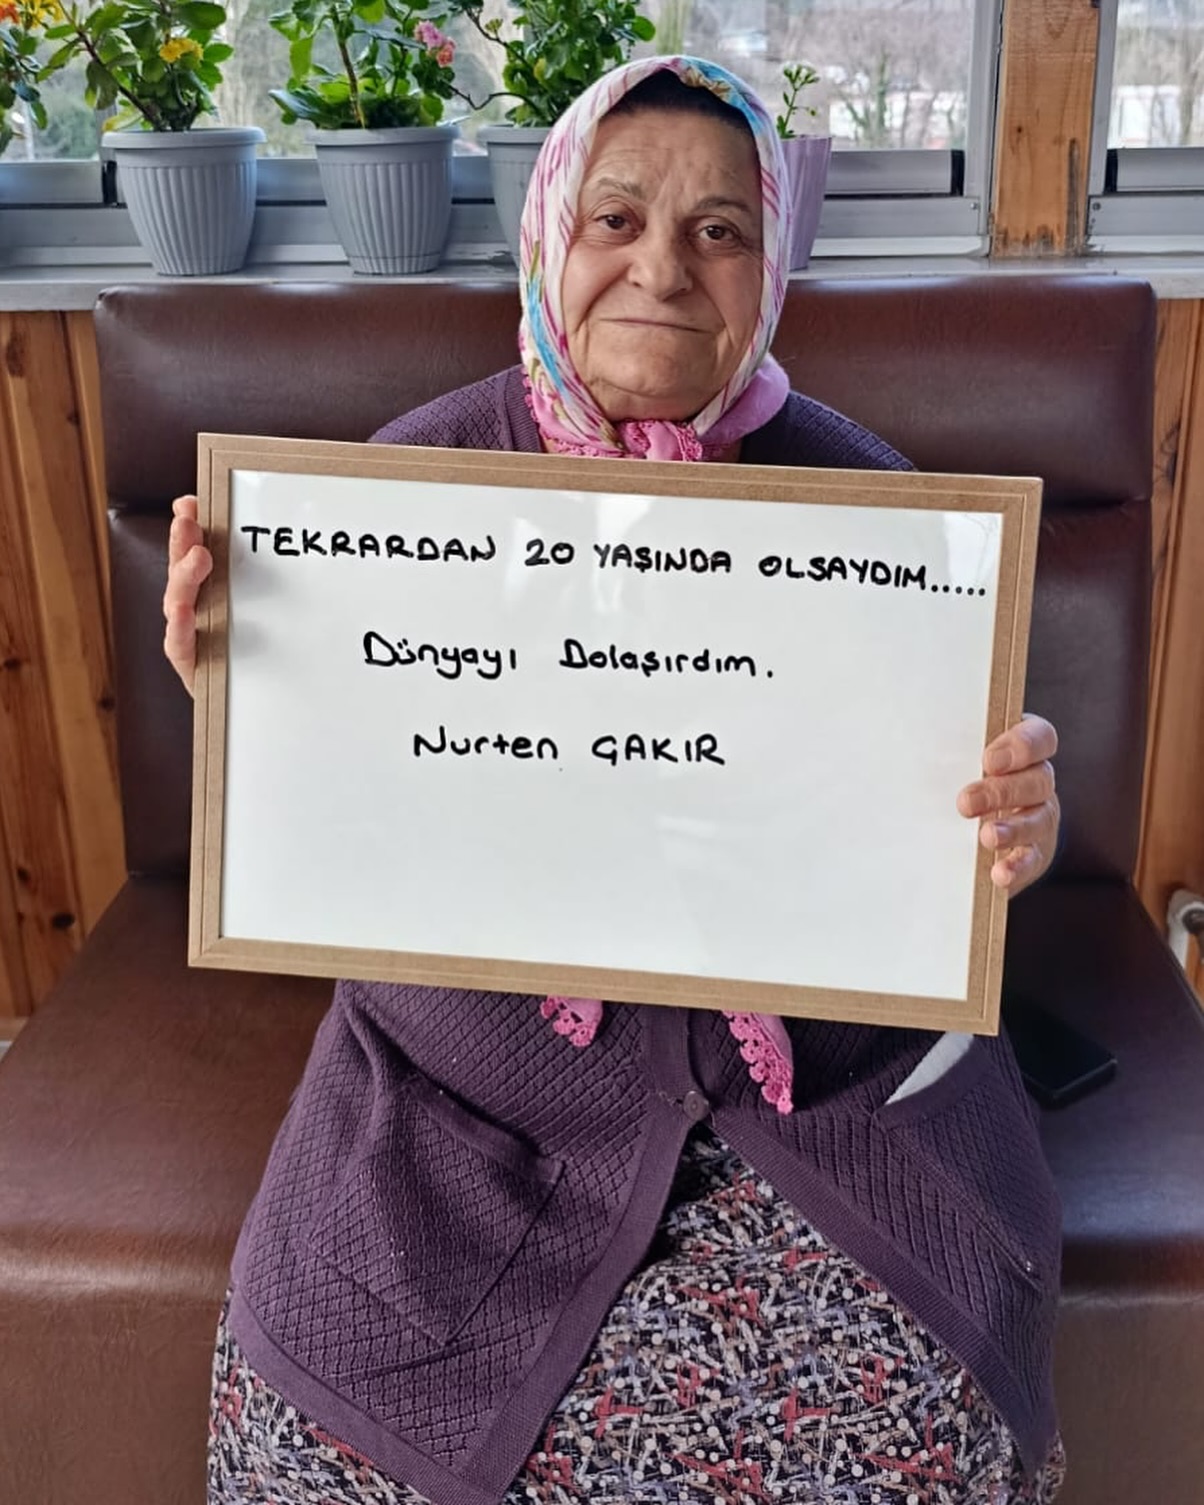 TEKRARDAN 20 YAŞINDA OLSAYDIM.....
Dünyayı Dolaşırdım.
Nurten ÇAKIR